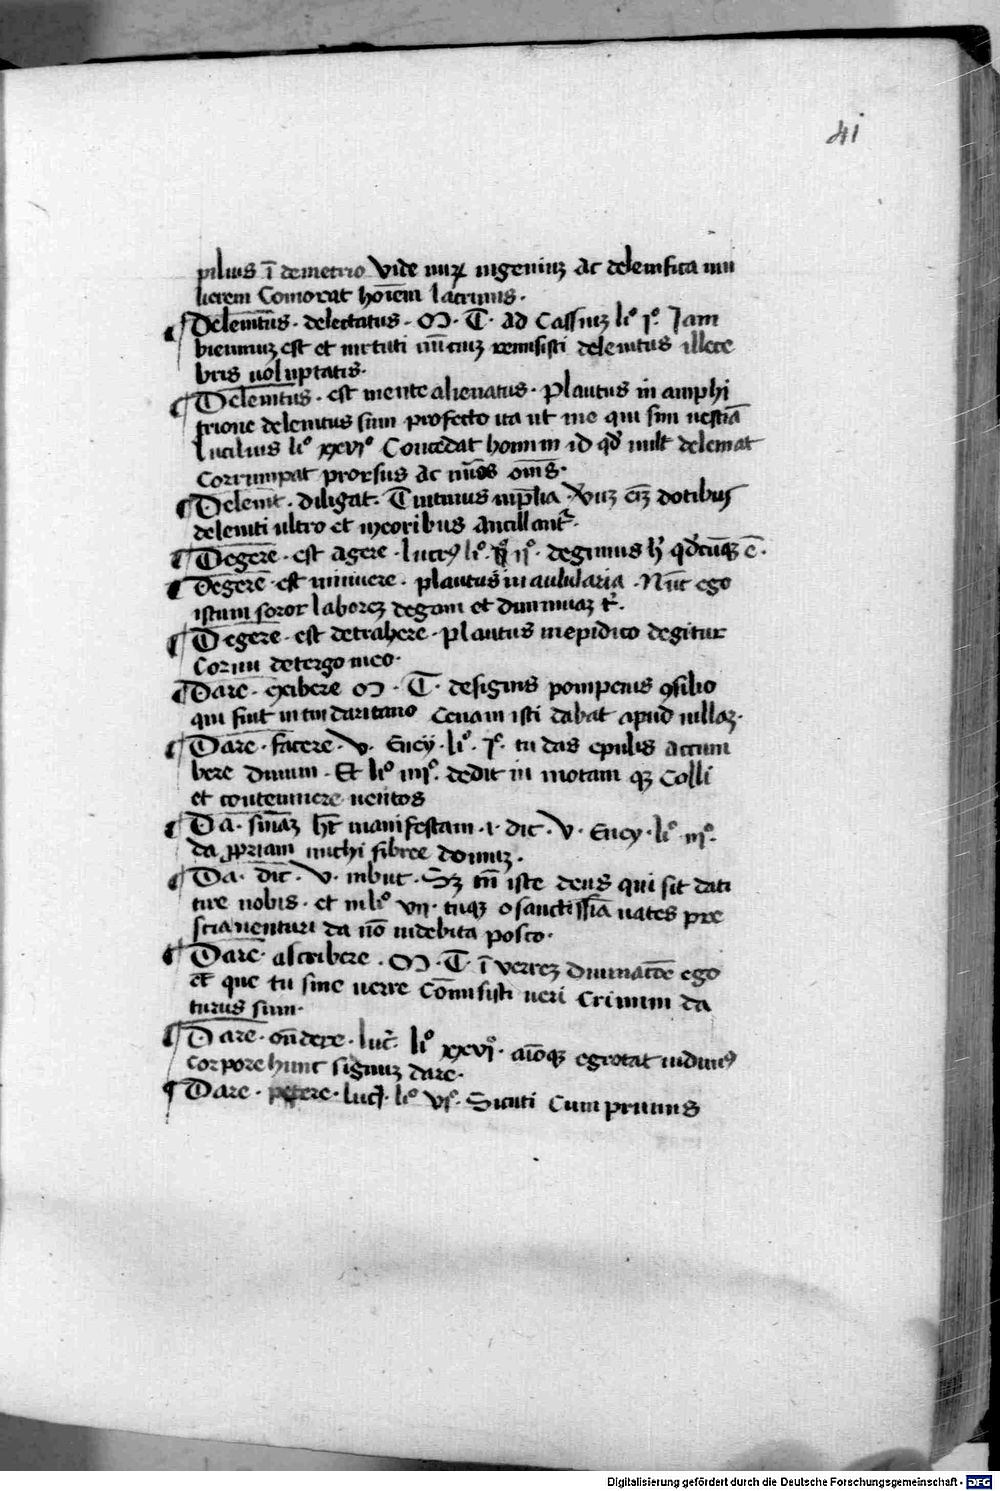 41
pilius ī demetrio Vide nūꝝ ingeniuꝫ ac delenifica mu
lierem Comorat hoīem lacrimis.
Delenitus. delectatus. M. T. ad Cassiuꝫ liº. jº. Jam
bienniuꝫ est et virtuti nūciuꝫ remisisti delenitus illece
bris uoluptatis.
Delenitus. est mente alienatus. Plautus in amphi
trione delenitus sum profecto ita ut me qui sim nestiā
Lucilius liº xxviº Concedat homini id qđ uult deleniat
Corrumpat prorsus ac nūos oīns.
Delenit. diligat. Titinius in
deleniti ultro et meoribus ancillant᷑.
Degere. est agere. lucreꝰ liº. ijº. degimus h qđcūqꝫ ē.
Degere. est minuere. plautus in aulularia. Nūc ego
istum soror laboreꝫ degam et diminuaꝫ t᷑.
Degere. est detrahere. plautus in epidico degitur
Corium de tergo meo.
Dare. exibere M. T. designis pompeius ꝯsilio
qui fuit in tui daritano cenam isti dabat apud uillaꝫ.
Dare. facere. V. Eney. liº. jº. tu das epulis accum
bere diuum. Et liº iiijº. dedit in motam qꝫ Colli
et contennere uentos
Da. sinaꝫ hēt manifestam. i. dic. V. Eney. liº iijº.
da ꝓpriam michi tibree domuꝫ.
Da. dic. V. in buc. Sꝫ tn̄ iste deus qui sit dati
tire nobis. et in liº vij. tuqꝫ o sanctissīa uates pre
scia uenturi da nō indebita posco.
Dare. ascribere. M. T. ī verreꝫ diuinatōe ego
et que tu sine uerre Cōmisisti ueri Crimini da
turus sum.
Dare. ondere. luc. liº xxviº. aīoqꝫ egrotat uidimꝰ
corpore hunc signuꝫ dare.
Dare. petere. lucr. liº vjº. Sicuti Cum primis
Digitalisierung gefördert durch die Deutsche Forschungsgemeinschaft - DFG